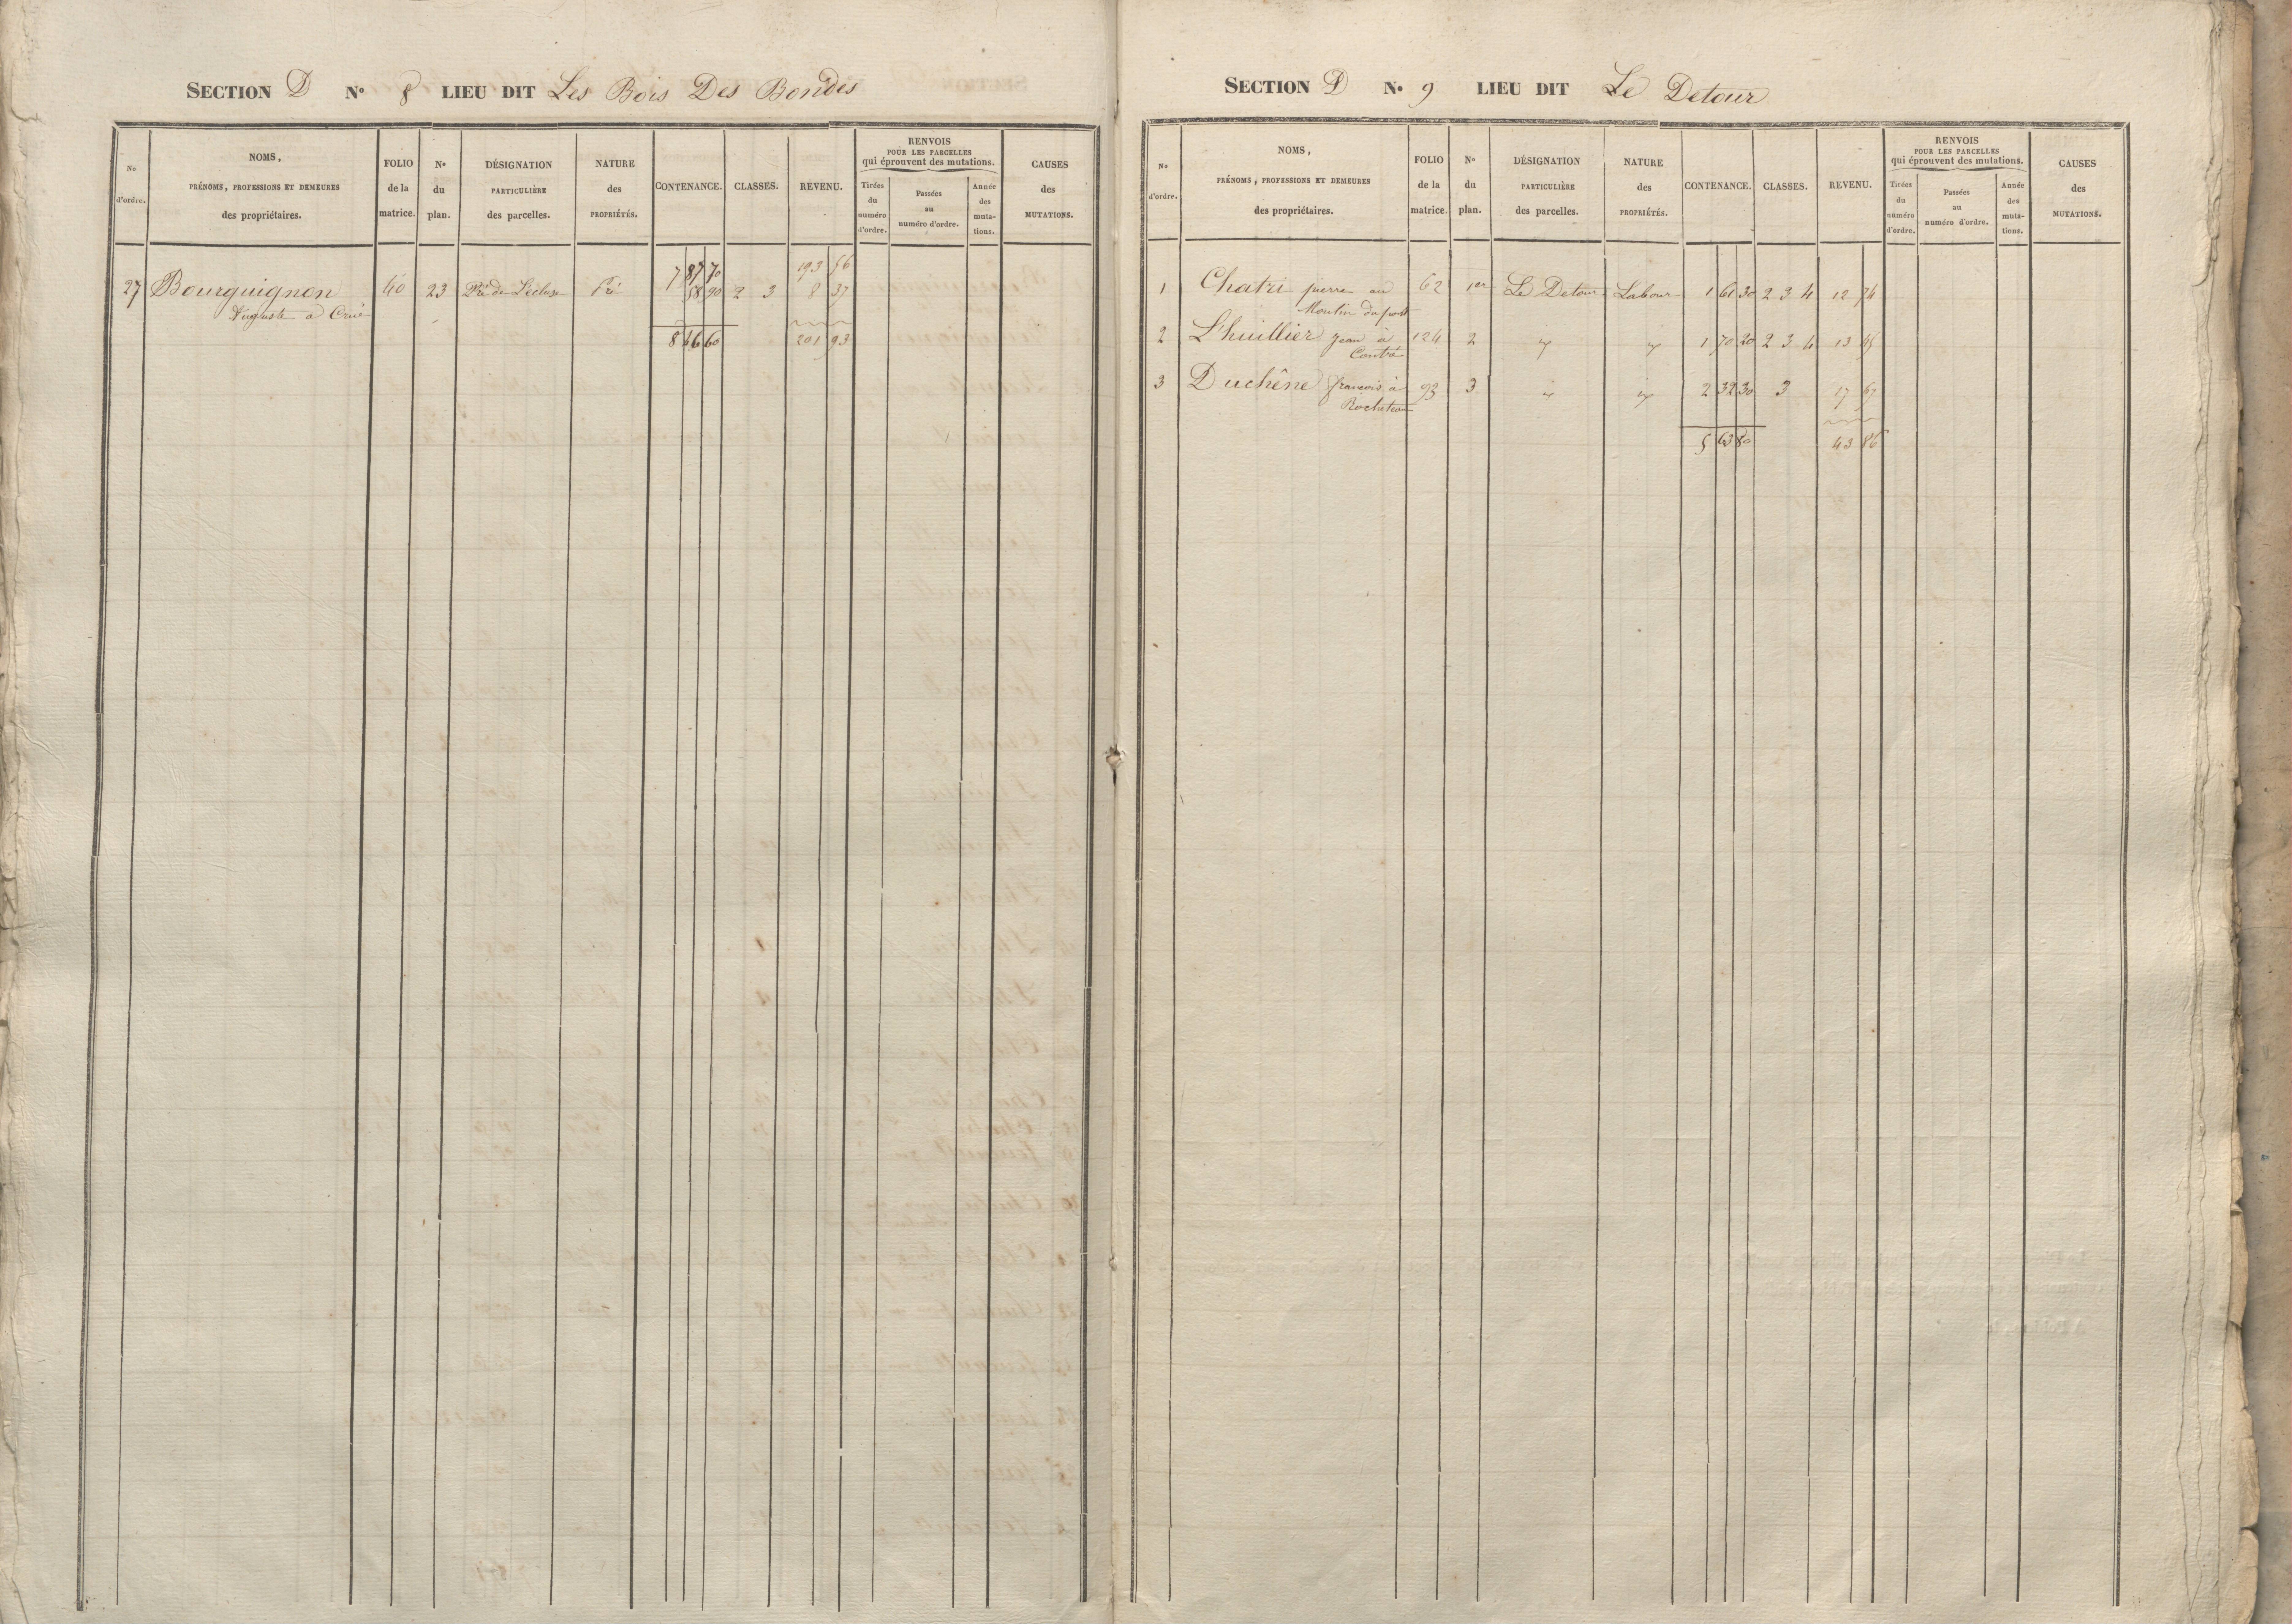 SECTION D N° 8 LIEU DIT Les Bois Des Bondes
N° d'ordre.
NOMS, PRÉNOMS, PROFESSIONS ET DEMEURES des propriétaires.
FOLIO de la matrice.
N° du plan.
DÉSIGNATION PARTICULIÈRE des parcelles.
NATURE des PROPRIÉTÉS.
CONTENANCE.
CLASSES.
REVENU.
RENVOIS POUR LES PARCELLES qui éprouvent des mutations.
Tirées du numéro d'ordre.
Passées au numéro d'ordre.
Année des mutations.
CAUSES des MUTATIONS.
7 87 70 193 56
27 Bourguignon 40 23 Pré de L'ecluse Pré 58 90 2 3 8 37
Auguste a
8 46 60 201 93
SECTION D N° 9 LIEU DIT Le Detour
N° d'ordre.
NOMS, PRÉNOMS, PROFESSIONS ET DEMEURES des propriétaires.
FOLIO de la matrice.
N° du plan.
DÉSIGNATION PARTICULIÈRE des parcelles.
NATURE des PROPRIÉTÉS.
CONTENANCE.
CLASSES.
REVENU.
RENVOIS POUR LES PARCELLES qui éprouvent des mutations.
Tirées du numéro d'ordre.
Passées au numéro d'ordre.
Année des mutations.
CAUSES des MUTATIONS.
1 Chatri pierre au 62 1er Le Detour Labour 1 61 30 2 3 4 12 74
Moulin du port
2 L'huillier jean à 124 2 " " 1 70 20 2 3 4 13 45
3 Duchêne francois à 93 3 " " 2 32 30 3 17 67
5 63 80 43 86